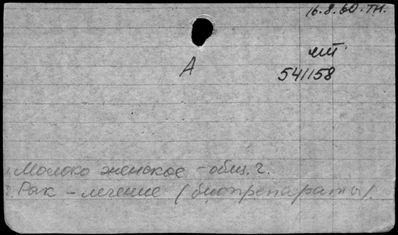 16.8.60. тн.
чт
А
541158
Молоко женское - общ. г.
Рак - лечение (биопрепараты).